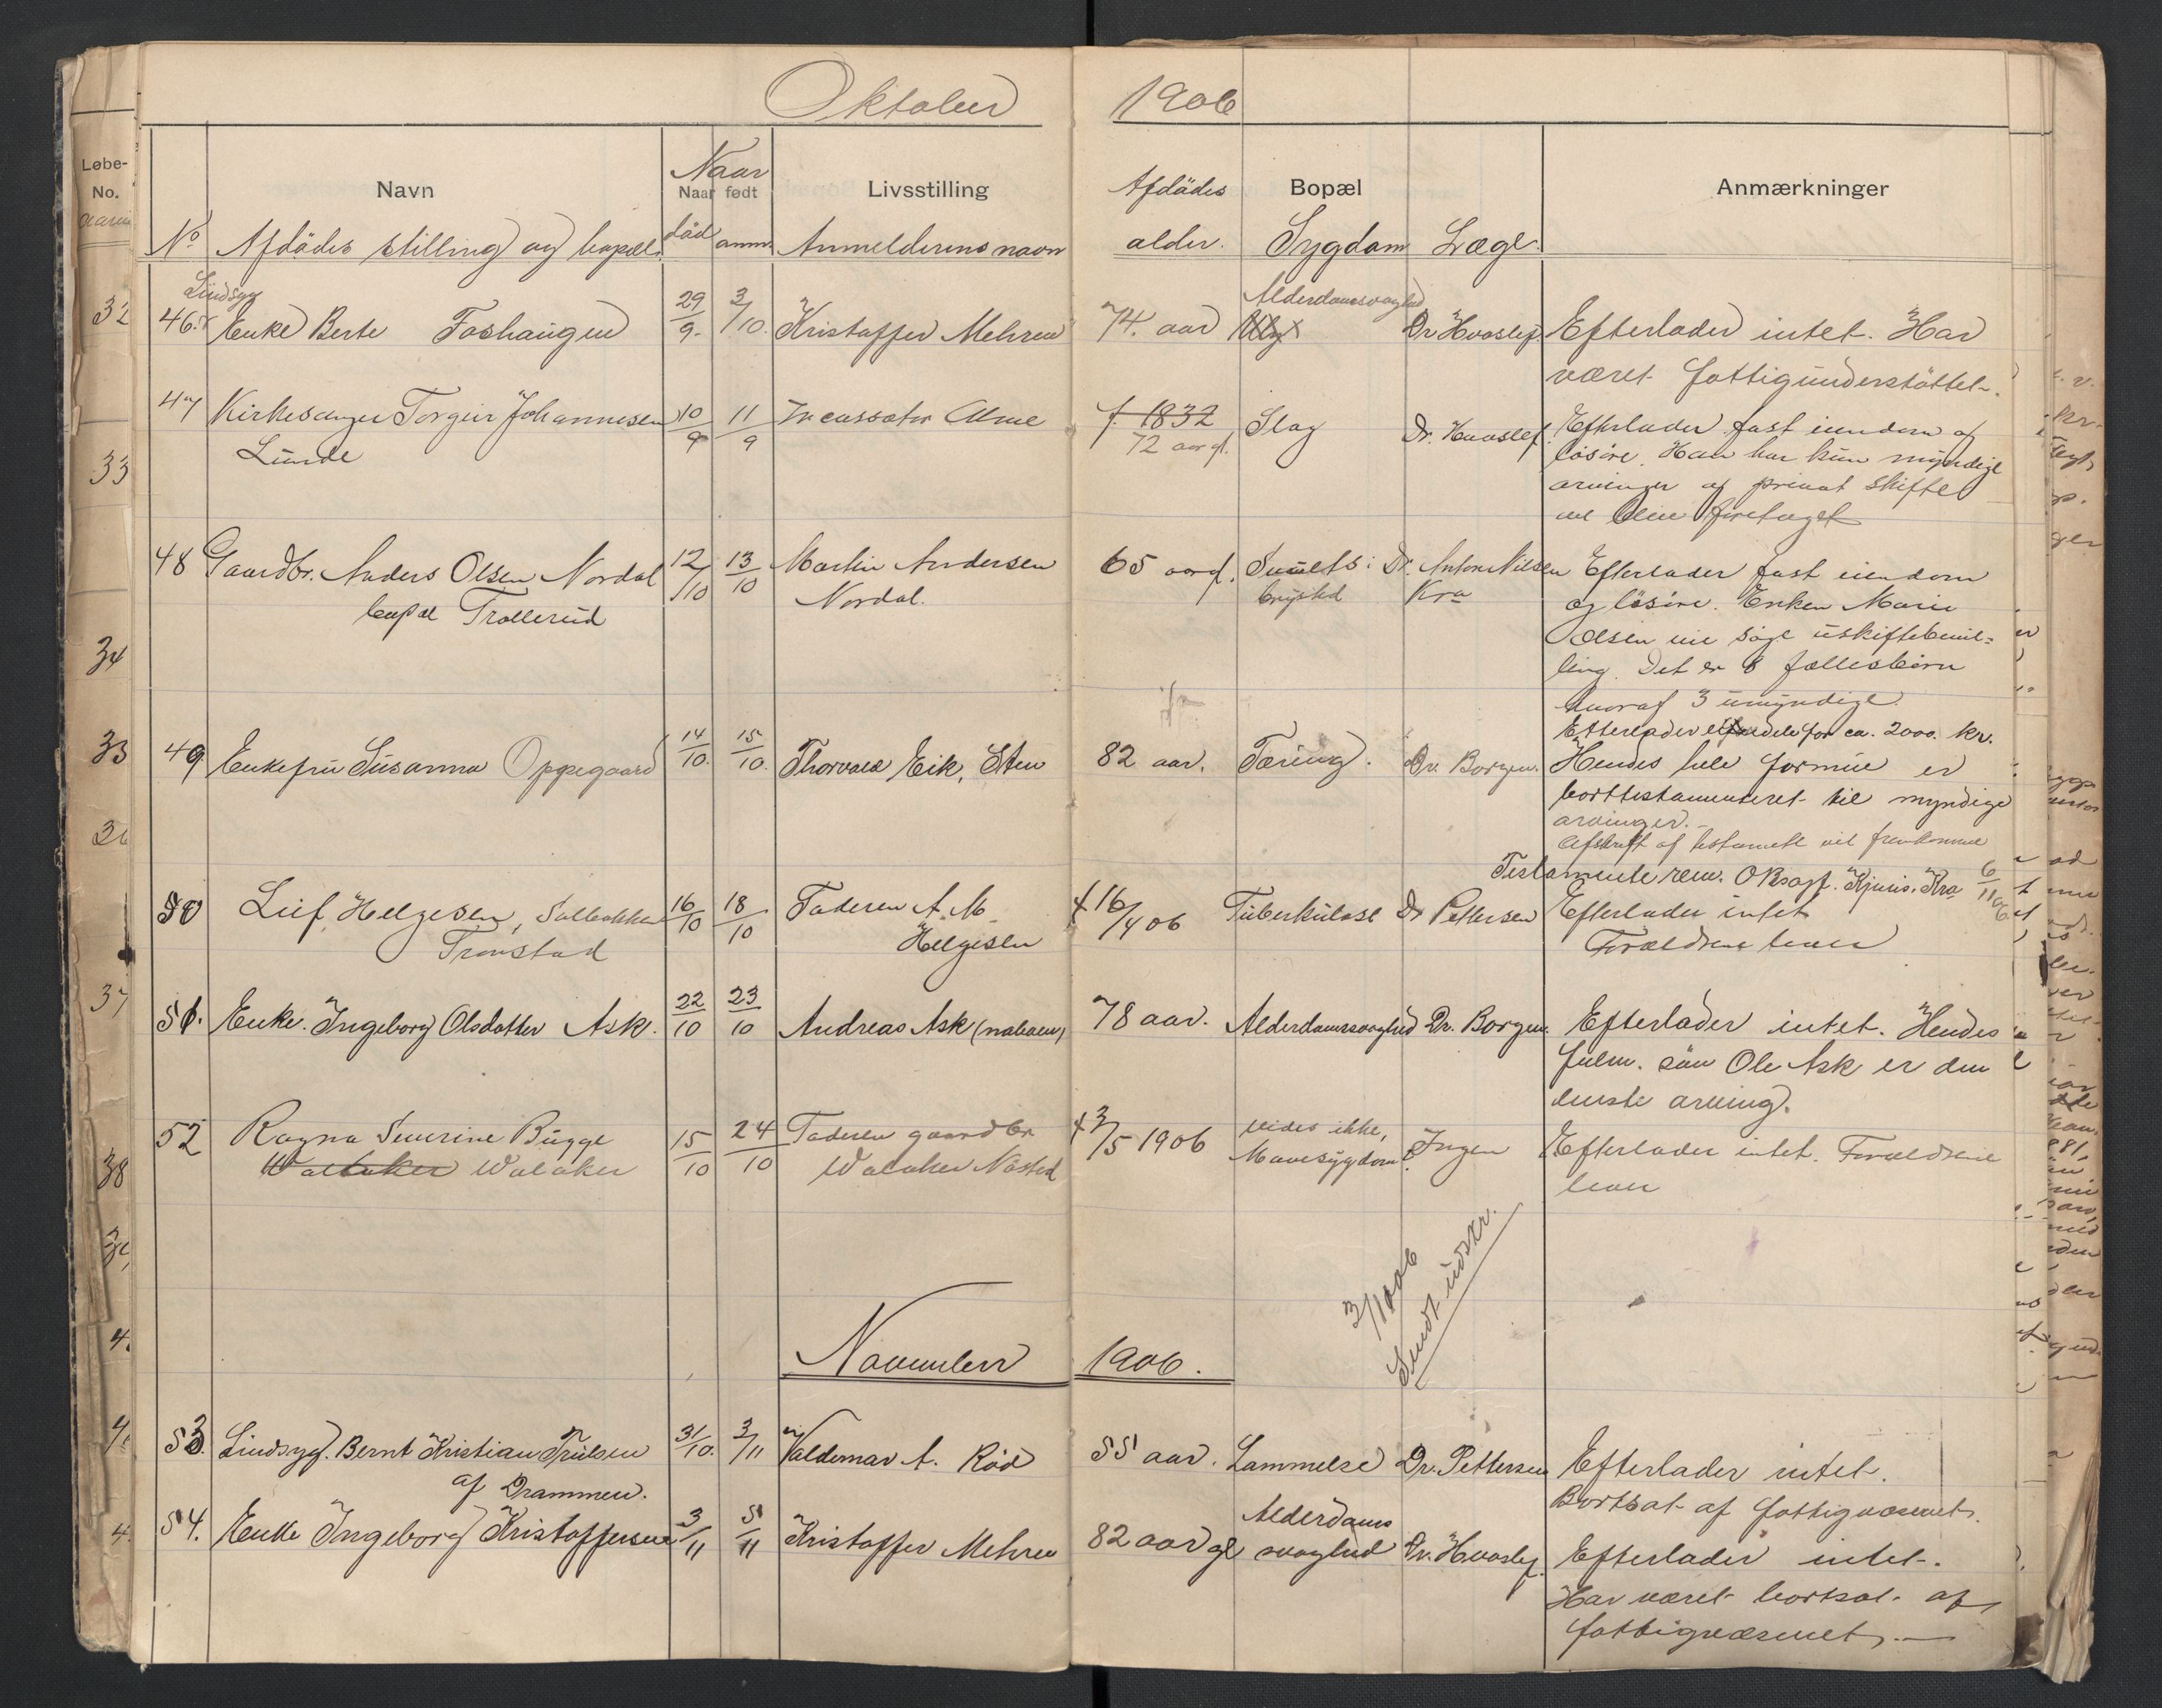 Oktober 1906
Løbe-
No.
Navn
Naar
Naar født
Livsstilling
Afdödes
Bopæl
Anmærkninger
No Afdödes stilling og bopæl.
död anm. Anmelderens navn
alder. Sygdom Læge.
Lindsyg
46. Enke Berte Foshaugen 29/9. 3/10. Kristoffer Mehren 74. aar Alderdomssvaghed Dr. Hvoslef. Efterlader intet. Har
været fattigunderstöttet.
47 Kirkesanger Torgeir Johannesen 10/9 11/9 Incassator Alme f. 1832 Slag Dr. Hvoslef. Efterlader fast eiendom og
Lunde 72 aar gl. lösöre. Han har kun myndige
arvinger og privat skifte
vil blive foretaget
48 Gaardbr. Anders Olsen Nordal 12/10 13/10 Martin Andersen 65 aar gl. Dr. Anton Nilsen Efterlader fast eiendom
bopæl Trollerud Nordal. brysted Kra og lösöre. Enken Marie
Olsen vil söge uskiftebevil=
ling. Det er 8 fællesbörn
hvoraf 3 umyndige.
Efterlader eiendele for ca. 2000. kr.
49. Enkefru Susanna Oppegaard 14/10. 15/10. Thorvald Eik, Sten 82 aar. Tæring. Dr. Borgen. Hendes hele formue er
borttestamenteret til myndige
arvinger.-
Afskrift af testamente vil fremkomme
Testamente rem. O.Rsagf. Kjuris. Kra 6/11 06
50 Leif Helgesen, Solbakken 16/10 18/10 Faderen A. M. 16/4 06 Tuberkulose Dr Pettersen Efterlader intet
Tronstad Helgesen Forældrene lever
51. Enke. Ingeborg Olsdatter Ask. 22/10 23/10 Andreas Ask (naboen) 78 aar. Alderdomssvaghed Dr. Borgen. Efterlader intet. Hendes
fulm. sön Ole Ask er den
eneste arving.
52 Ragna Severine Bugge 15/10 24/10 Faderen gaardbr 3/5 1906 vides ikke, Ingen Efterlader intet. Forældrene
Walaker Walaker Næsted Mavesygdom? lever
3/11 06
Sendt udskr.
November 1906.
53. Sindsyg. Bernt Kristian Trulsen 31/10. 3/11 Valdemar A. Röd 55 aar. Lammelse Dr. Pettersen Efterlader intet.
af Drammen. Bortsat af fattigvæsenet.
54. Enke Ingeborg Kristoffersen 3/11 5/11 Kristoffer Mehren 82 aar gl Alderdoms
svaghed Dr. Hvoslef. Efterlader intet.
Har været bortsat af
fattigvæsenet.-